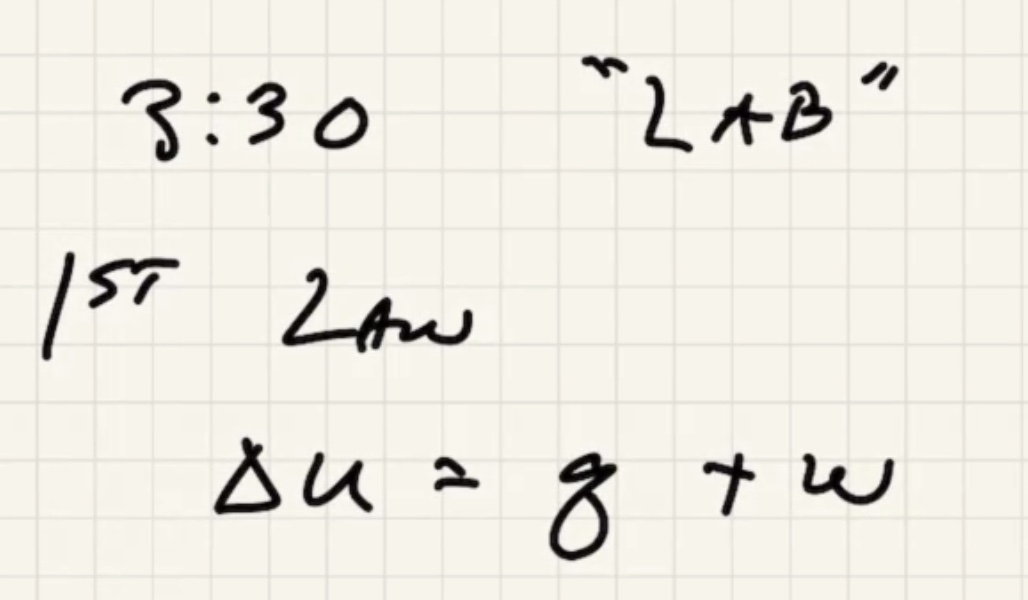 3:30 "LAB"
1ST LAW
ΔU = q + w